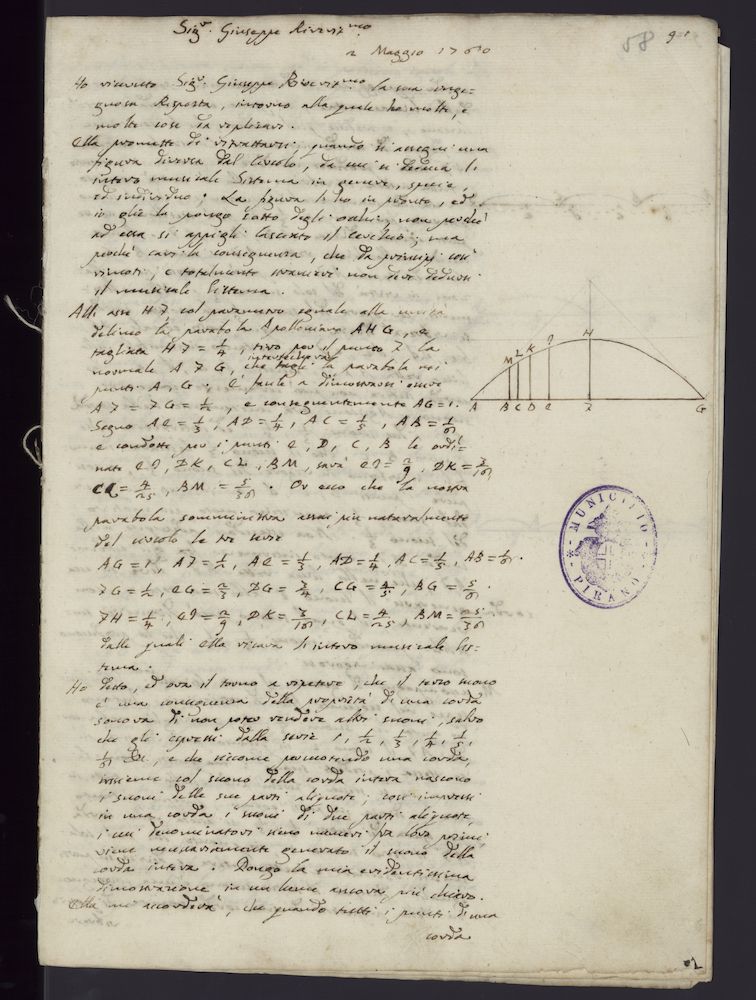 Sig.r Giuseppe Riveri.mo
2 Maggio 1760
58
Ho ricevuto Sig.r Giuseppe River.mo la sua inge=
gnosa Risposta, intorno alla quale ho molte, e
molte cose da replicare.
Ella promette di ritrattarsi, quando li assegni una
figura diversa dal Circolo, da cui si deduca l'
intero musicale Sistema in genere, specie,
ed individuo; La figura l'ho in pronto, ed
io glie la pongo sotto degli occhi, non perchè
ad essa si appigli lasciato il cerchio; ma
perchè cavi la conseguenza, che da principj così
rimoti, e totalmente stranieri non deve dedursi
il musicale Sistema.
All' asse HF col parametro eguale alla unità
delineo la parabola Apolloniana AHG, e
tagliata HF = 1/4, tiro per il punto F la
normale AFG, che tagli la parabola nei
intersecherà
punti A, G. È facile a dimostrarsi essere
AF = FG = 1/2, e conseguentemente AG = 1.
Segno AE = 1/3, AD = 1/4, AC = 1/5, AB = 1/6
e condotte per i punti E, D, C, B le ordi=
nate EI, DK, CL, BM, sarà EI = 2/9, DK = 3/16
CL = 4/25, BM = 5/36. Or ecco che la nostra
parabola somministra assai più naturalmente
del circolo le tre serie
AG = 1, AF = 1/2, AE = 1/3, AD = 1/4, AC = 1/5, AB = 1/6.
FG = 1/2, EG = 2/3, DG = 3/4, CG = 4/5, BG = 5/6.
FH = 1/4, EI = 2/9, DK = 3/16, CL = 4/25, BM = 5/36
dalle quali Ella ricava l'intero musicale Sis=
tema.
Ho detto, ed ora il torno a ripetere, che il terzo suono
è una conseguenza della proprietà di una corda
sonora di non poter rendere altri suoni, salvo
che gli espressi dalla serie 1, 1/2, 1/3, 1/4, 1/5,
1/6 &c., e che siccome percuotendo una corda,
insieme col suono della corda intera nascono
i suoni delle sue parti aliquote; così impressi
in una corda i suoni di due parti aliquote,
i cui denominatori sieno numeri fra loro primi
viene necessariamente generato il suono della
corda intera. Pongo la mia evidentissima
dimostrazione in un lume ancora più chiaro.
Ella mi accorderà, che quando tutti i punti di una
corda
M L K I H
A B C D E F G
MUNICIPIO
PIRANO